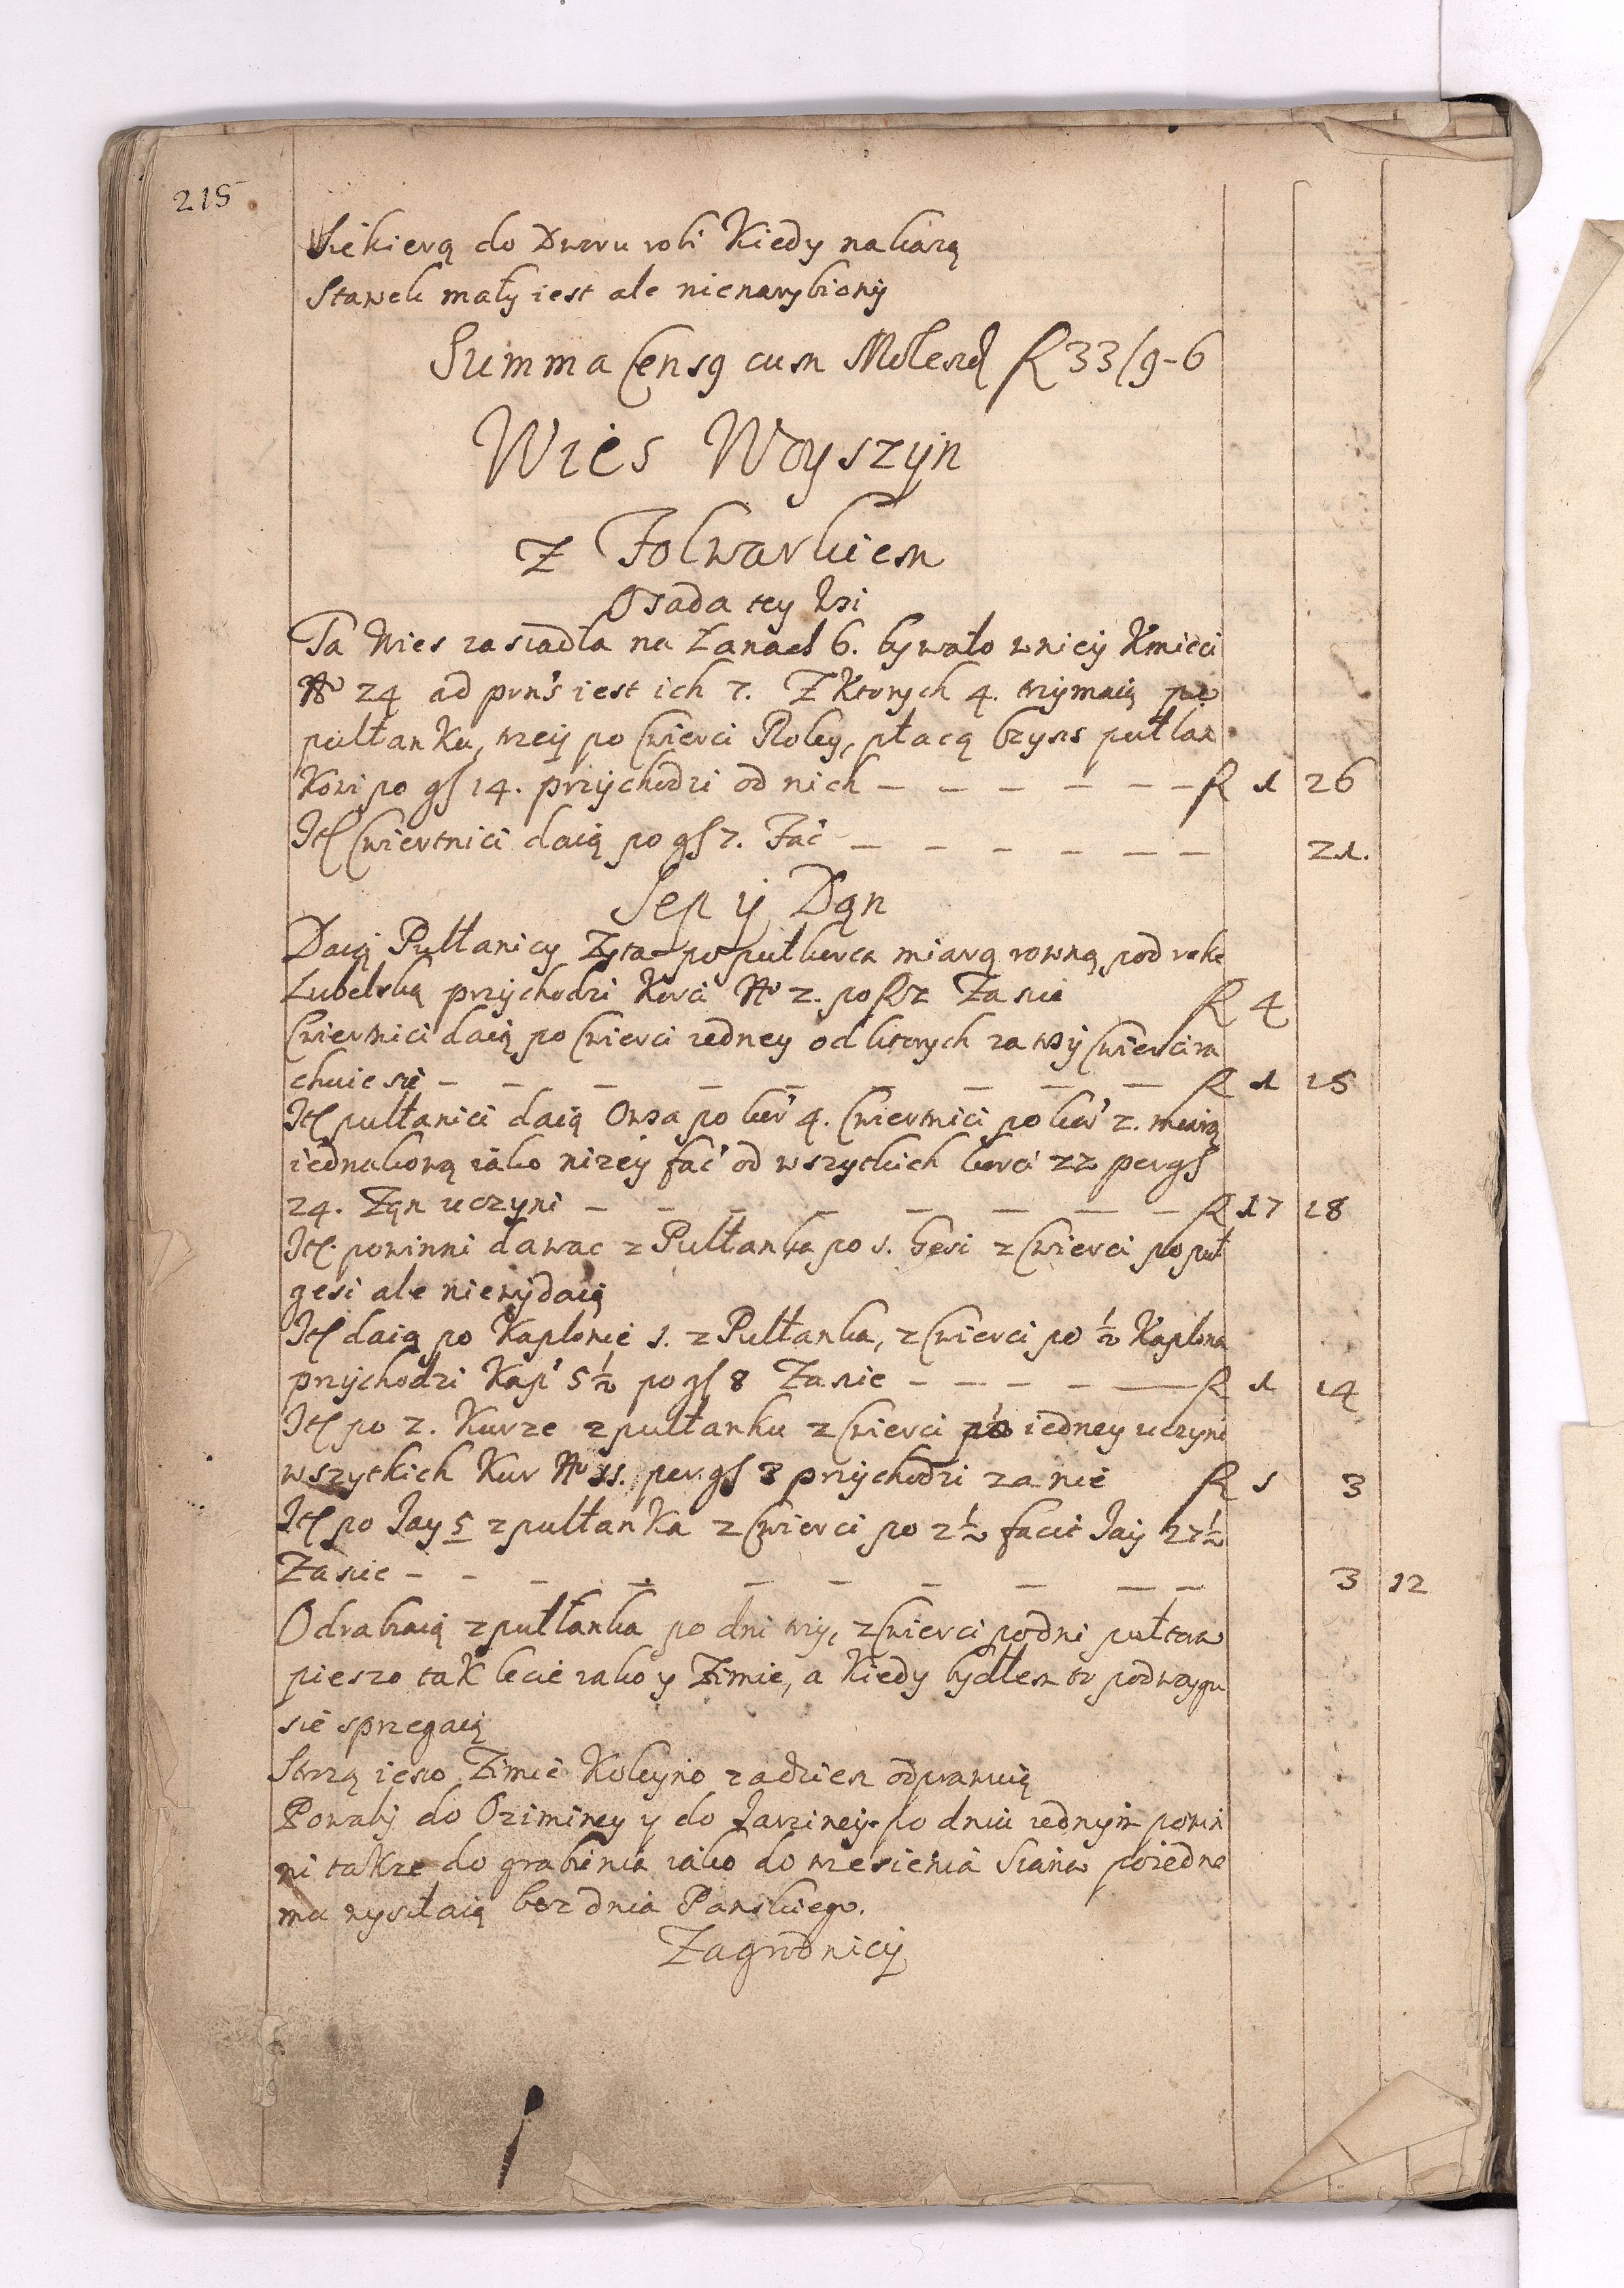 215
Siekierą do Dworu robi Kiedy nakażą
Stawek mały iest ale nienarybiony
Summa Censg cum Molend R 33/9-6
Wies Woyszyn
z Folwarkiem
Osada tey Wsi
Ta Wies zasiadła na Łanach 6. bywało wniey Kmieci
No 24 ad prn's iest ich 7. Z Ktorych 4. trzymaią po
pułłanku, trzey po Cwierci Roley, płacą Czynsz pułłan
Kowi po gſ 14. przychodzi od nich — — — — — — R 1 26
Itſ Cwiertnici daią po gſ 7. Fac — — — — — — 21.
Sep y Dan
Daią Pułłanicy Zyta po pułkorca miarą rowną pod reke
Lubelską przychodzi Korci No 2. po R 2 Za nie R 4
Cwiertnici daią po Cwierci iedney od ktorych za trzy Cwierci ra
chuie sie — — — — — — — — — R 1 15
Itſ pułłanici daią Owsa po kor' 4. Cwiertnici po kor' 2. miarą
iednakową iako nizey fac' od wszytkich korci 22 per gſ
24. Zan uczyni — — — — — — — — R 17 18
Itſ. powinni dawac z Pułłanka po 1. Gesi z Cwierci po puł
gesi ale niewydaią
Itſ daią po Kapłonie 1. z Pułłanka, z Cwierci po ½ Kapłona
przychodzi Kap' 5½ po gſ 8 Za nie — — — — — R 1 14
Itſ po 2. Kurze z pułłanku z Cwierci po iedney uczyni
wszytkich Kur No 11. per gſ 3 przychodzi za nie R 1 3
Itſ po Jay 5 z pułłanKa z Cwierci po 2½ facit Jay 27½
Za nie — — — — — — — — — — 3 12
Odrabiaią z pułłanka po dni trzy, z Cwierci po dni pułtora
pieszo tak lecie iako y Zimie, a Kiedy bydłem to podwzygu
sie sprzegaią
Strozą ieno Zimie Koleyno zadzien odprawuią
Powaby do Oziminey y do Jarziney po dniu iednym powin
ni takze do grabienia iako do wzesienia Siana poiedne
mu wysyłaią bez dnia Panskiego.
Zagrodnicy